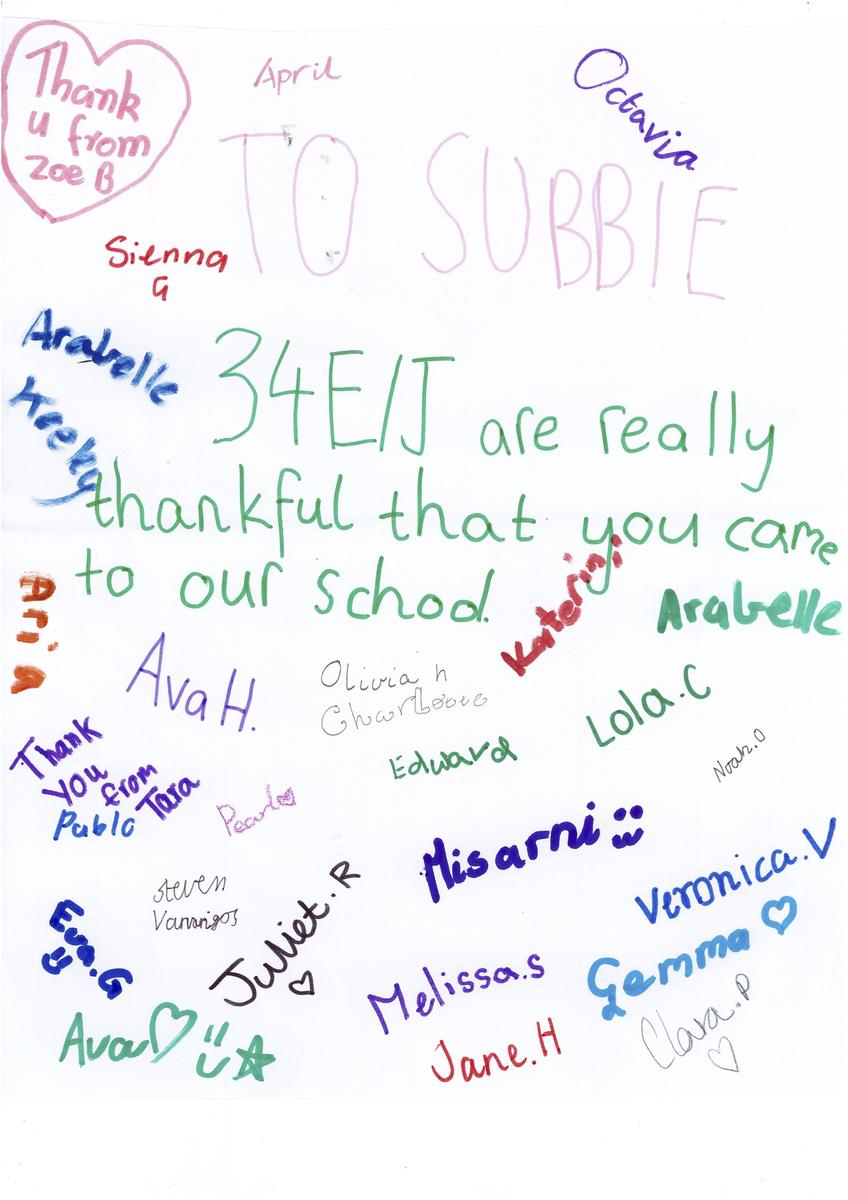 Thank
u from
Zoe B
April
Octavia
TO SUBBIE
Sienna
G
Arabelle
Keeley
34E/J are really
thankful that you came
to our school.
Aria
Katerini
Arabelle
Ava H.
Olivia h
Lola.C
Edward
Noah.O
Thank
you
from
Tara
Pablo
Pearl
Misarni
Veronica.V
Steven
Juliet.R
Eva.G
Melissa.s
Gemma
Clara.P
Ava
Jane.H